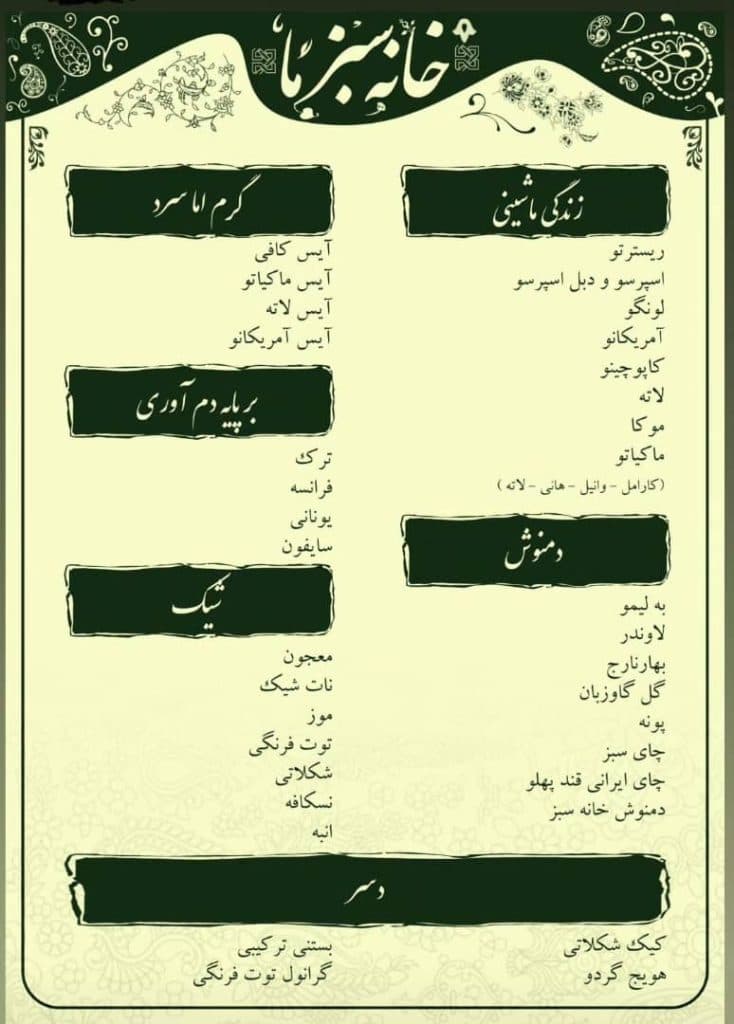 خانه سبز ما
زندگی ماشینی
ریسترتو
اسپرسو و دبل اسپرسو
لونگو
آمریکانو
کاپوچینو
لاته
موکا
ماکیاتو
(کارامل - وانیل - هانی - لاته )
دمنوش
به لیمو
لاوندر
بهارنارج
گل گاوزبان
پونه
چای سبز
چای ایرانی قند پهلو
دمنوش خانه سبز
گرم اما سرد
آیس کافی
آیس ماکیاتو
آیس لاته
آیس آمریکانو
بر پایه دم آوری
ترک
فرانسه
یونانی
سایفون
شیک
معجون
نات شیک
موز
توت فرنگی
شکلاتی
نسکافه
انبه
دسر
کیک شکلاتی
هویج گردو
بستنی ترکیبی
گرانول توت فرنگی